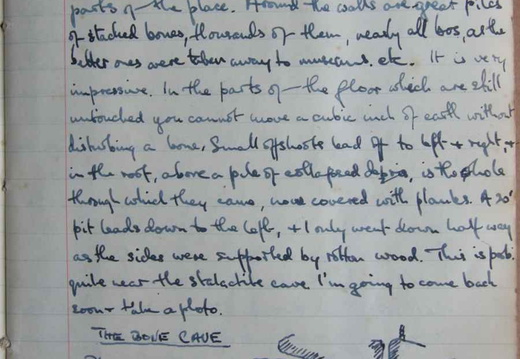 parts of the place. Around the walls are great piles
of stacked bones, thousands of them, nearly all bos, as the
better ones were taken away to museums etc. It is very
impressive. In the parts of the floor which are still
untouched you cannot move a cubic inch of earth without
disturbing a bone. Small offshoots lead off to left + right, +
in the roof, above a pile of collapsed debris, is the hole
through which they came, now covered with planks. A 20'
pit leads down to the left, + I only went down half way
as the sides were supported by rotten wood. This is prob.
quite near the stalactite cave I'm going to come back
soon + take a photo.
THE BONE CAVE